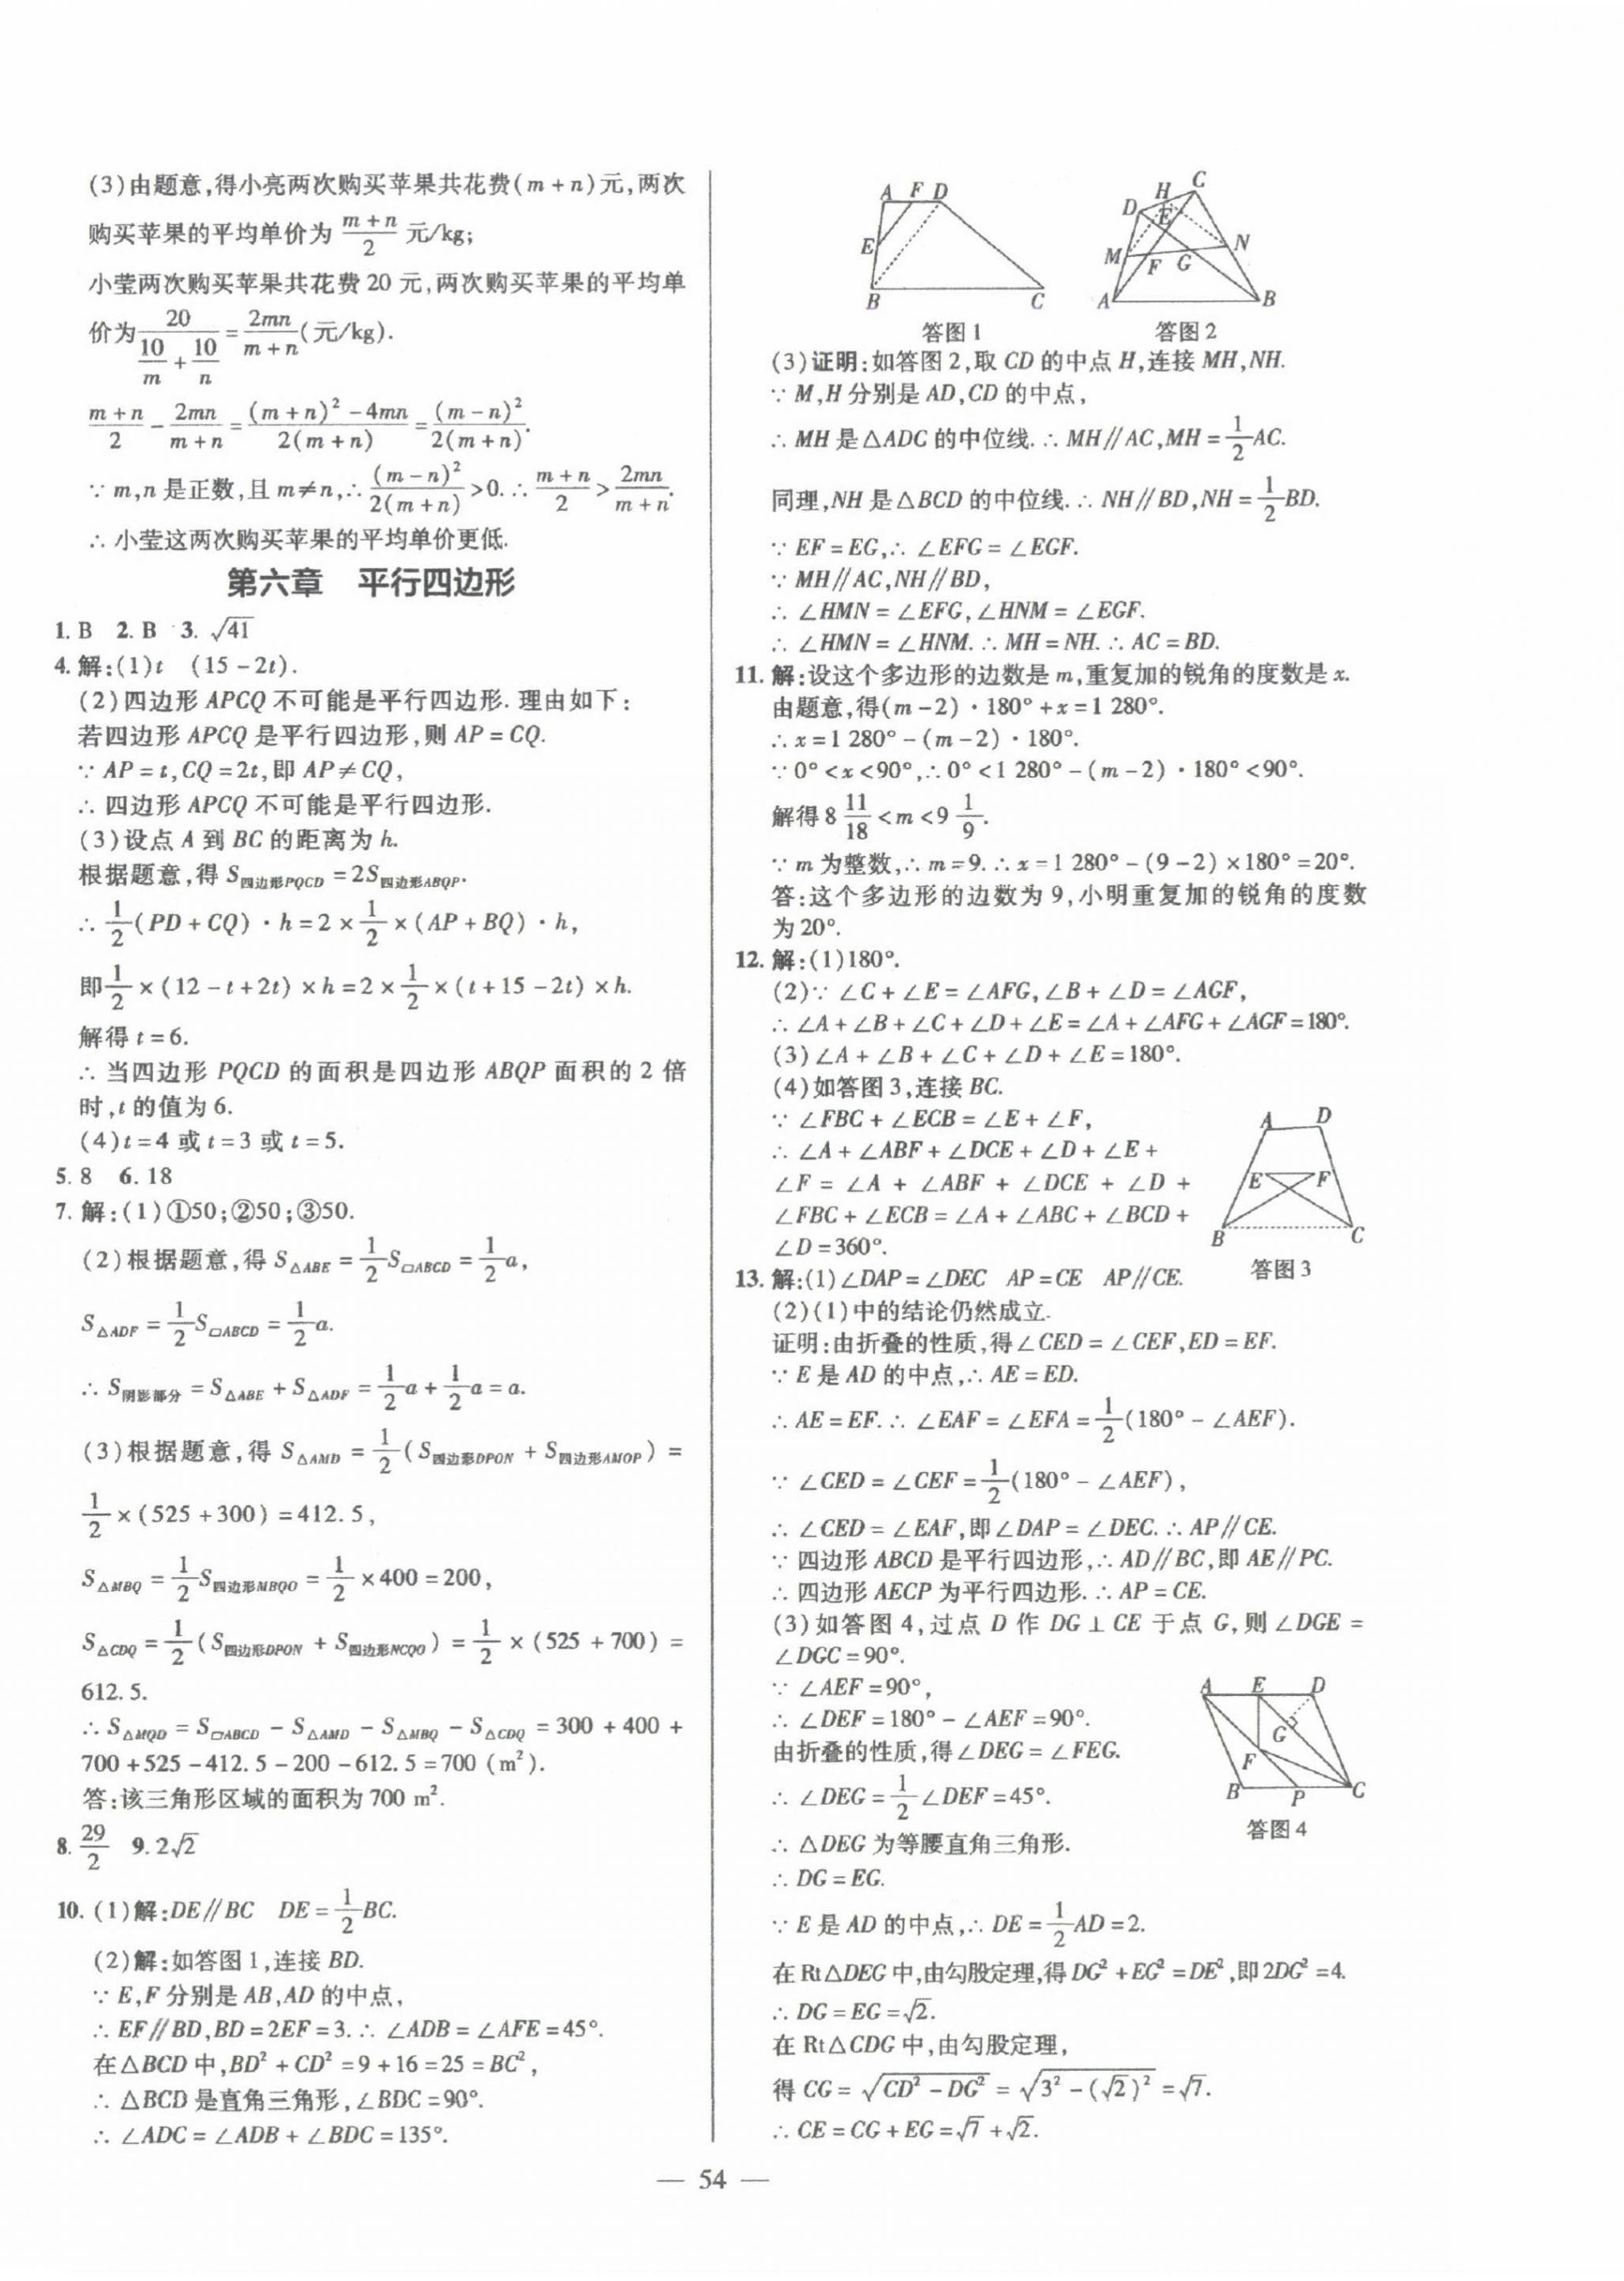 (3)由题意,得小亮两次购买苹果共花费(m+n)元,两次
购买苹果的平均单价为 (m+n)/2 元/kg;
小莹两次购买苹果共花费 20 元,两次购买苹果的平均单
价为 20/(10/m + 10/n) = 2mn/(m+n) (元/kg).
(m+n)/2 - 2mn/(m+n) = ((m+n)²-4mn)/(2(m+n)) = (m-n)²/(2(m+n)).
∵ m,n 是正数,且 m≠n,∴ (m-n)²/(2(m+n)) >0. ∴ (m+n)/2 > 2mn/(m+n).
∴ 小莹这两次购买苹果的平均单价更低.
第六章 平行四边形
1. B 2. B 3. √41
4. 解:(1)t (15-2t).
(2)四边形 APCQ 不可能是平行四边形. 理由如下:
若四边形 APCQ 是平行四边形,则 AP=CQ.
∵ AP=t,CQ=2t,即 AP≠CQ,
∴ 四边形 APCQ 不可能是平行四边形.
(3)设点 A 到 BC 的距离为 h.
根据题意,得 S四边形PQCD =2S四边形ABQP.
∴ 1/2(PD+CQ)·h=2×1/2×(AP+BQ)·h,
即 1/2×(12-t+2t)×h=2×1/2×(t+15-2t)×h.
解得 t=6.
∴ 当四边形 PQCD 的面积是四边形 ABQP 面积的 2 倍
时,t 的值为 6.
(4)t=4 或 t=3 或 t=5.
5. 8 6. 18
7. 解:(1)①50;②50;③50.
(2)根据题意,得 S△ABE = 1/2 S▱ABCD = 1/2 a,
S△ADF = 1/2 S▱ABCD = 1/2 a.
∴ S阴影部分 = S△ABE + S△ADF = 1/2 a + 1/2 a = a.
(3)根据题意,得 S△AMD = 1/2 (S四边形DPON + S四边形AMOP) =
1/2×(525+300)=412.5,
S△MBQ = 1/2 S四边形MBQO = 1/2×400=200,
S△CDQ = 1/2 (S四边形DPON + S四边形NCQO) = 1/2×(525+700)=
612.5.
∴ S△MQD = S▱ABCD - S△AMD - S△MBQ - S△CDQ =300+400+
700+525-412.5-200-612.5=700 (m²).
答:该三角形区域的面积为 700 m².
8. 29/2 9. 2√2
10. (1)解:DE∥BC DE = 1/2 BC.
(2)解:如答图 1,连接 BD.
∵ E,F 分别是 AB,AD 的中点,
∴ EF∥BD,BD=2EF=3. ∴ ∠ADB=∠AFE=45°.
在△BCD 中,BD²+CD²=9+16=25=BC²,
∴ △BCD 是直角三角形,∠BDC=90°.
∴ ∠ADC=∠ADB+∠BDC=135°.
A F D
E
B C
答图 1
C
H
D E
N
M F G
A B
答图 2
(3)证明:如答图 2,取 CD 的中点 H,连接 MH,NH.
∵ M,H 分别是 AD,CD 的中点,
∴ MH 是△ADC 的中位线. ∴ MH∥AC,MH = 1/2 AC.
同理,NH 是△BCD 的中位线. ∴ NH∥BD,NH = 1/2 BD.
∵ EF=EG,∴ ∠EFG=∠EGF.
∵ MH∥AC,NH∥BD,
∴ ∠HMN=∠EFG,∠HNM=∠EGF.
∴ ∠HMN=∠HNM. ∴ MH=NH. ∴ AC=BD.
11. 解:设这个多边形的边数是 m,重复加的锐角的度数是 x.
由题意,得(m-2)·180°+x=1 280°.
∴ x=1 280°-(m-2)·180°.
∵ 0°<x<90°,∴ 0°<1 280°-(m-2)·180°<90°.
解得 8 11/18 <m<9 1/9.
∵ m 为整数,∴ m=9. ∴ x=1 280°-(9-2)×180°=20°.
答:这个多边形的边数为 9,小明重复加的锐角的度数
为 20°.
12. 解:(1)180°.
(2)∵ ∠C+∠E=∠AFG,∠B+∠D=∠AGF,
∴ ∠A+∠B+∠C+∠D+∠E=∠A+∠AFG+∠AGF=180°.
(3)∠A+∠B+∠C+∠D+∠E=180°.
(4)如答图 3,连接 BC.
∵ ∠FBC+∠ECB=∠E+∠F,
∴ ∠A+∠ABF+∠DCE+∠D+∠E+
∠F=∠A+∠ABF+∠DCE+∠D+
∠FBC+∠ECB=∠A+∠ABC+∠BCD+
∠D=360°.
A D
E F
B C
答图 3
13. 解:(1)∠DAP=∠DEC AP=CE AP∥CE.
(2)(1)中的结论仍然成立.
证明:由折叠的性质,得∠CED=∠CEF,ED=EF.
∵ E 是 AD 的中点,∴ AE=ED.
∴ AE=EF. ∴ ∠EAF=∠EFA= 1/2(180°-∠AEF).
∵ ∠CED=∠CEF= 1/2(180°-∠AEF),
∴ ∠CED=∠EAF,即∠DAP=∠DEC. ∴ AP∥CE.
∵ 四边形 ABCD 是平行四边形,∴ AD∥BC,即 AE∥PC.
∴ 四边形 AECP 为平行四边形. ∴ AP=CE.
(3)如答图 4,过点 D 作 DG⊥CE 于点 G,则∠DGE=
∠DGC=90°.
∵ ∠AEF=90°,
∴ ∠DEF=180°-∠AEF=90°.
由折叠的性质,得∠DEG=∠FEG.
∴ ∠DEG= 1/2∠DEF=45°.
∴ △DEG 为等腰直角三角形.
∴ DG=EG.
∵ E 是 AD 的中点,∴ DE= 1/2 AD=2.
在 Rt△DEG 中,由勾股定理,得 DG²+EG²=DE²,即 2DG²=4.
∴ DG=EG=√2.
在 Rt△CDG 中,由勾股定理,
得 CG= √(CD²-DG²) = √(3²-(√2)²) =√7.
∴ CE=CG+EG=√7+√2.
A E D
G
F
B P C
答图 4
— 54 —